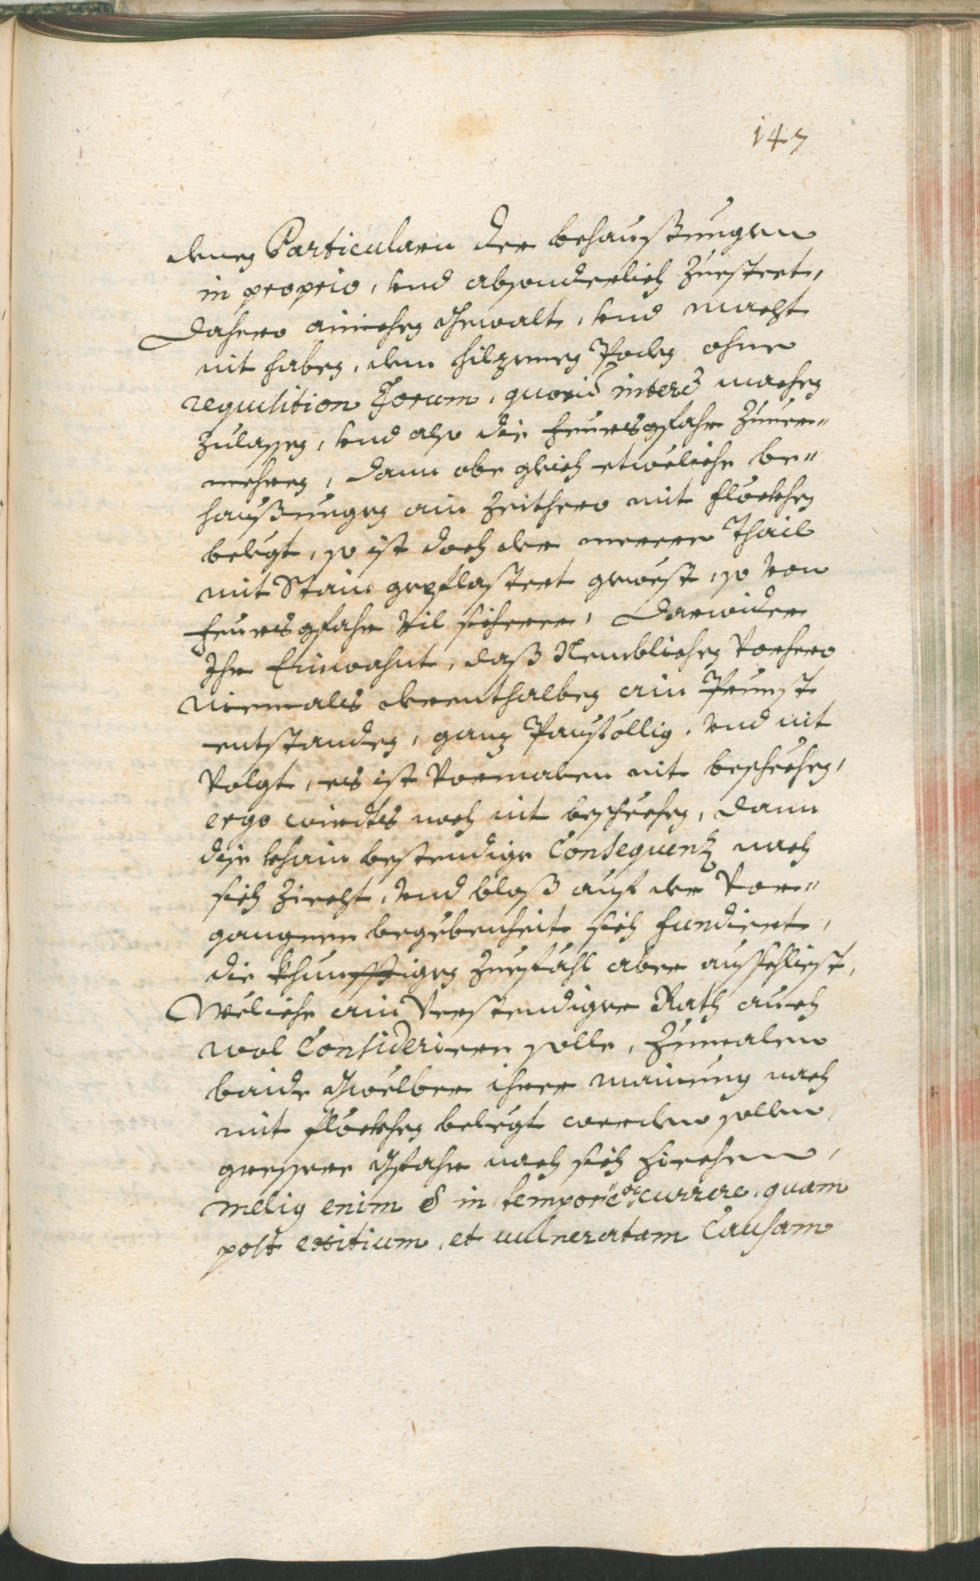 147
denen Particularn der behaußungen
in proprio, vnd absonderlich Zuesteet,
Dahero ainichen Gewalt, vnd macht
nit haben, den hilzenen Poden ohne
requisition Jorum, quorum interest machen
Zulassen, vnd also die feuersgfahr Zuuer-
mehren, dann ob gleich etweliche be-
haußungen ain Zeithero mit flöckhen
belegt, so ist doch der merere Thail
mit Stain gepflastert gewest, so von
feuersgfahr vil sicherer, Darwider
Ihr Einwahnt, daß Nemblichen vorhero
niemals derenthalben ain Prunst
entstanden, ganz Pauföllig, vnd nit
volgt, es ist vormalen nit beschechen,
ergo wirdts noch nit beschechen, dann
dise khain bestendige Consequenz nach
sich Ziecht, vnd bloß auf der vor-
gangnen begebenheit sich fundiert,
die khunfftigen Zuefähl aber ausschliest,
Weliche ain Verstendiger Rath auch
wol Consideriern solle, Zumalen
baide Gwelber ihrer mainung nach
mit flöckhen belegt werden sollen,
gresser Gfahr nach sich Ziechen,
melius enim est in tempore occurrere, quam
post exitium, et uulneratam Causam